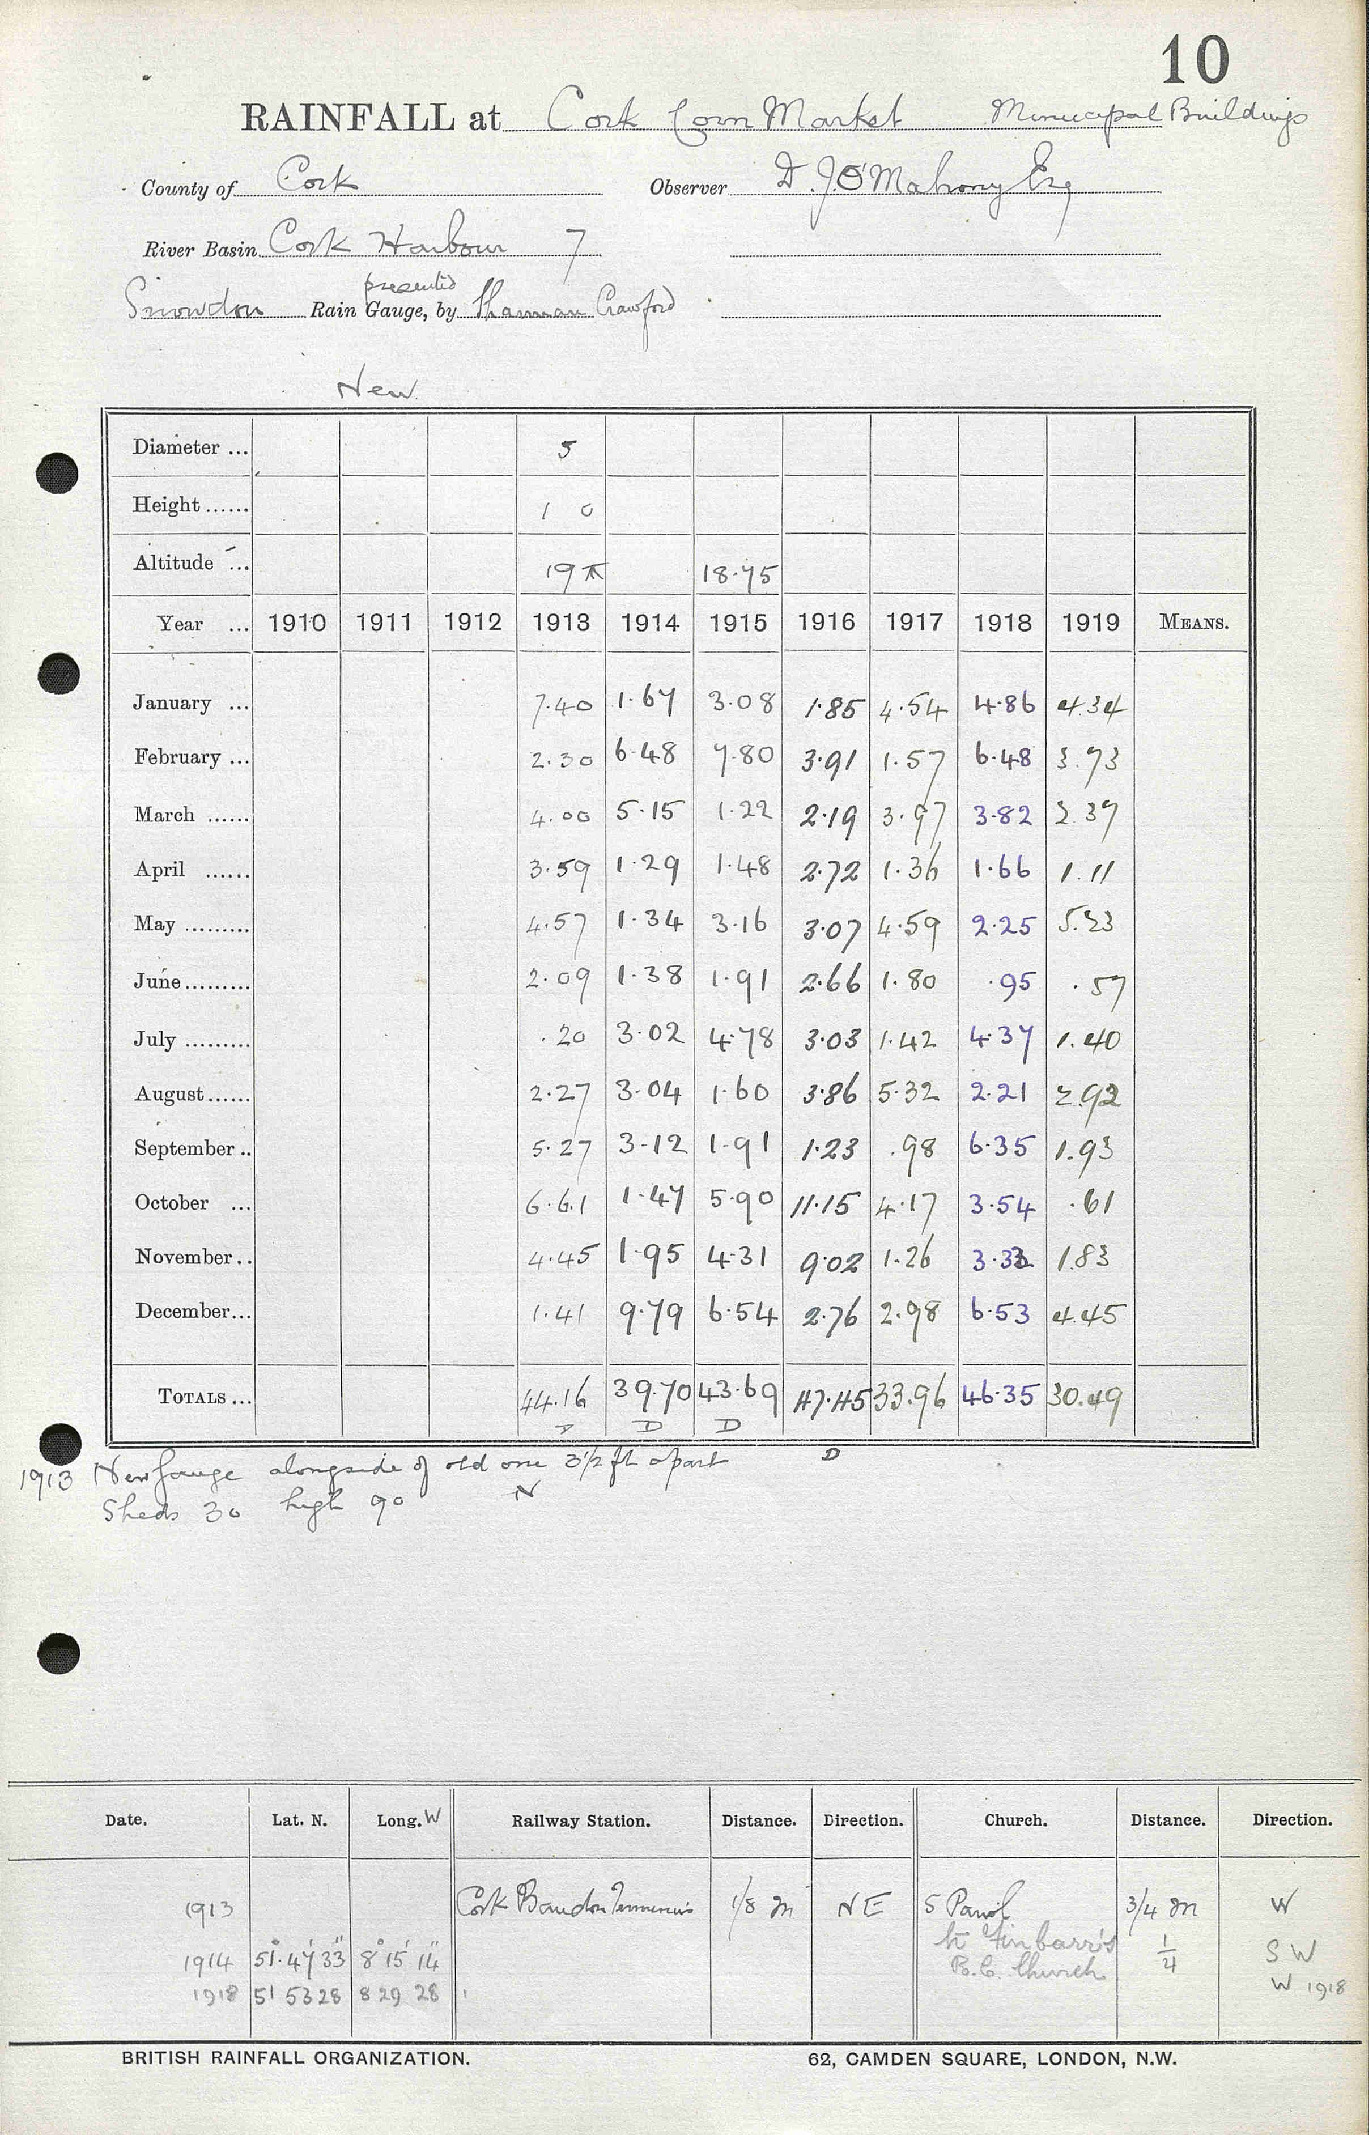 10
RAINFALL at Cork Corn Market Municipal Buildings
County of Cork Observer D. J. O'Mahony Esq
River Basin Cork Harbour 7
presented
Snowdon Rain Gauge, by Sharman Crawford
New
Diameter ... 5
Height ...... 1 0
Altitude ... 19 18.75
Year ... 1910 1911 1912 1913 1914 1915 1916 1917 1918 1919 MEANS.
January ... 7.40 1.67 3.08 1.85 4.54 4.86 4.34
February ... 2.30 6.48 7.80 3.91 1.57 6.48 3.73
March ...... 4.00 5.15 1.22 2.19 3.97 3.82 2.37
April ...... 3.59 1.29 1.48 2.72 1.36 1.66 1.11
May ......... 4.57 1.34 3.16 3.07 4.59 2.25 5.23
June ......... 2.09 1.38 1.91 2.66 1.80 .95 .57
July ......... .20 3.02 4.78 3.03 1.42 4.37 1.40
August ...... 2.27 3.04 1.60 3.86 5.32 2.21 2.92
September .. 5.27 3.12 1.91 1.23 .98 6.35 1.93
October ... 6.61 1.47 5.90 11.15 4.17 3.54 .61
November .. 4.45 1.95 4.31 9.02 1.26 3.33 1.83
December ... 1.41 9.79 6.54 2.76 2.98 6.53 4.45
TOTALS ... 44.16 39.70 43.69 47.45 33.96 46.35 30.49
D D D D
1913 New gauge alongside of old one 3½ ft apart
Sheds 30 high 90 N
Date. Lat. N. Long. W Railway Station. Distance. Direction. Church. Distance. Direction.
1913 Cork Bandon Terminus 1/8 m NE S Paul 3/4 m W
1914 51° 47' 33" 8° 15' 14" St Finbarr's R.C. Church 1/4 SW
1918 51 53 28 8 29 28 W 1918
BRITISH RAINFALL ORGANIZATION. 62, CAMDEN SQUARE, LONDON, N.W.